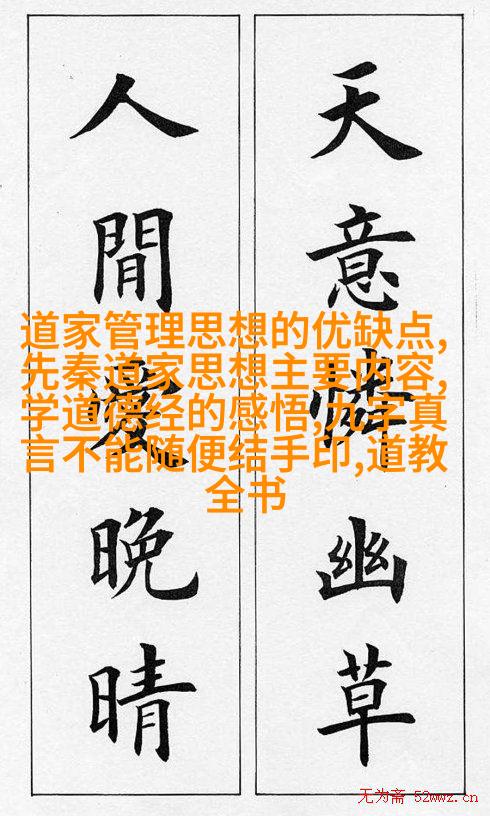 天意憐幽草
人間愛晚晴
道家管理思想的优缺点,
先秦道家思想主要内容,
学道德经的感悟,九字真
言不能随便结手印,道教
全书
无为斋 52wwz.cn